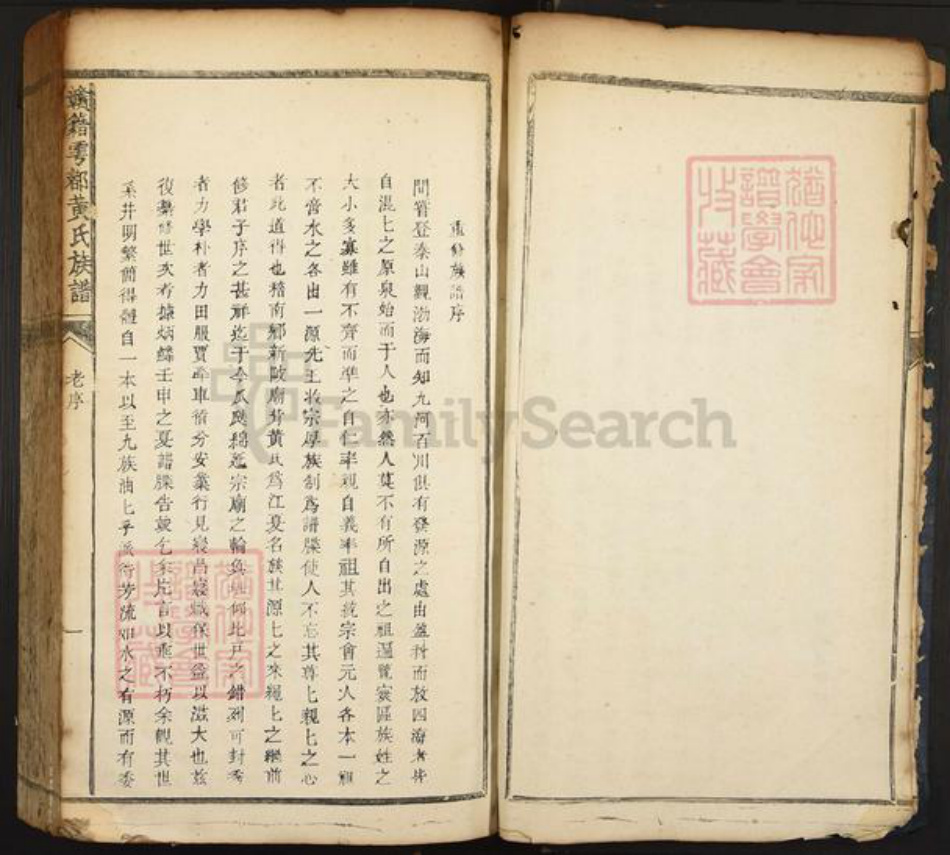 重修族譜序
間嘗登泰山觀渤海而知九河百川俱有發源之處由盈科而放四海者皆
自混匕之原泉始而于人也亦然人莫不有所自出之祖遍覽寰區族姓之
大小多寡雖有不齊而準之自仁率親自義率祖其統宗會元人各本一祖
不啻水之各出一源先王收宗厚族制爲譜牒使人不忘其尊匕親匕之心
者此道得也贛南鄉新陂廟背黃氏爲江夏名族其源匕之來繩匕之繼前
修君子序之甚詳迄于今瓜瓞綿延宗廟之輪奐比戶之錯列可封秀
者力學朴者力田服賈牽車循分安業行見寖昌寖熾保世益以滋大也茲
復纂修世次考據炳麟壬申之夏譜牒告竣乞余片言以垂不朽余觀其世
系井明繁簡得體自一本以至九族油匕乎派衍芳流如水之有源而有委
贛籍雩都黃氏族譜
老序
一
譜學會
收藏
FamilySearch